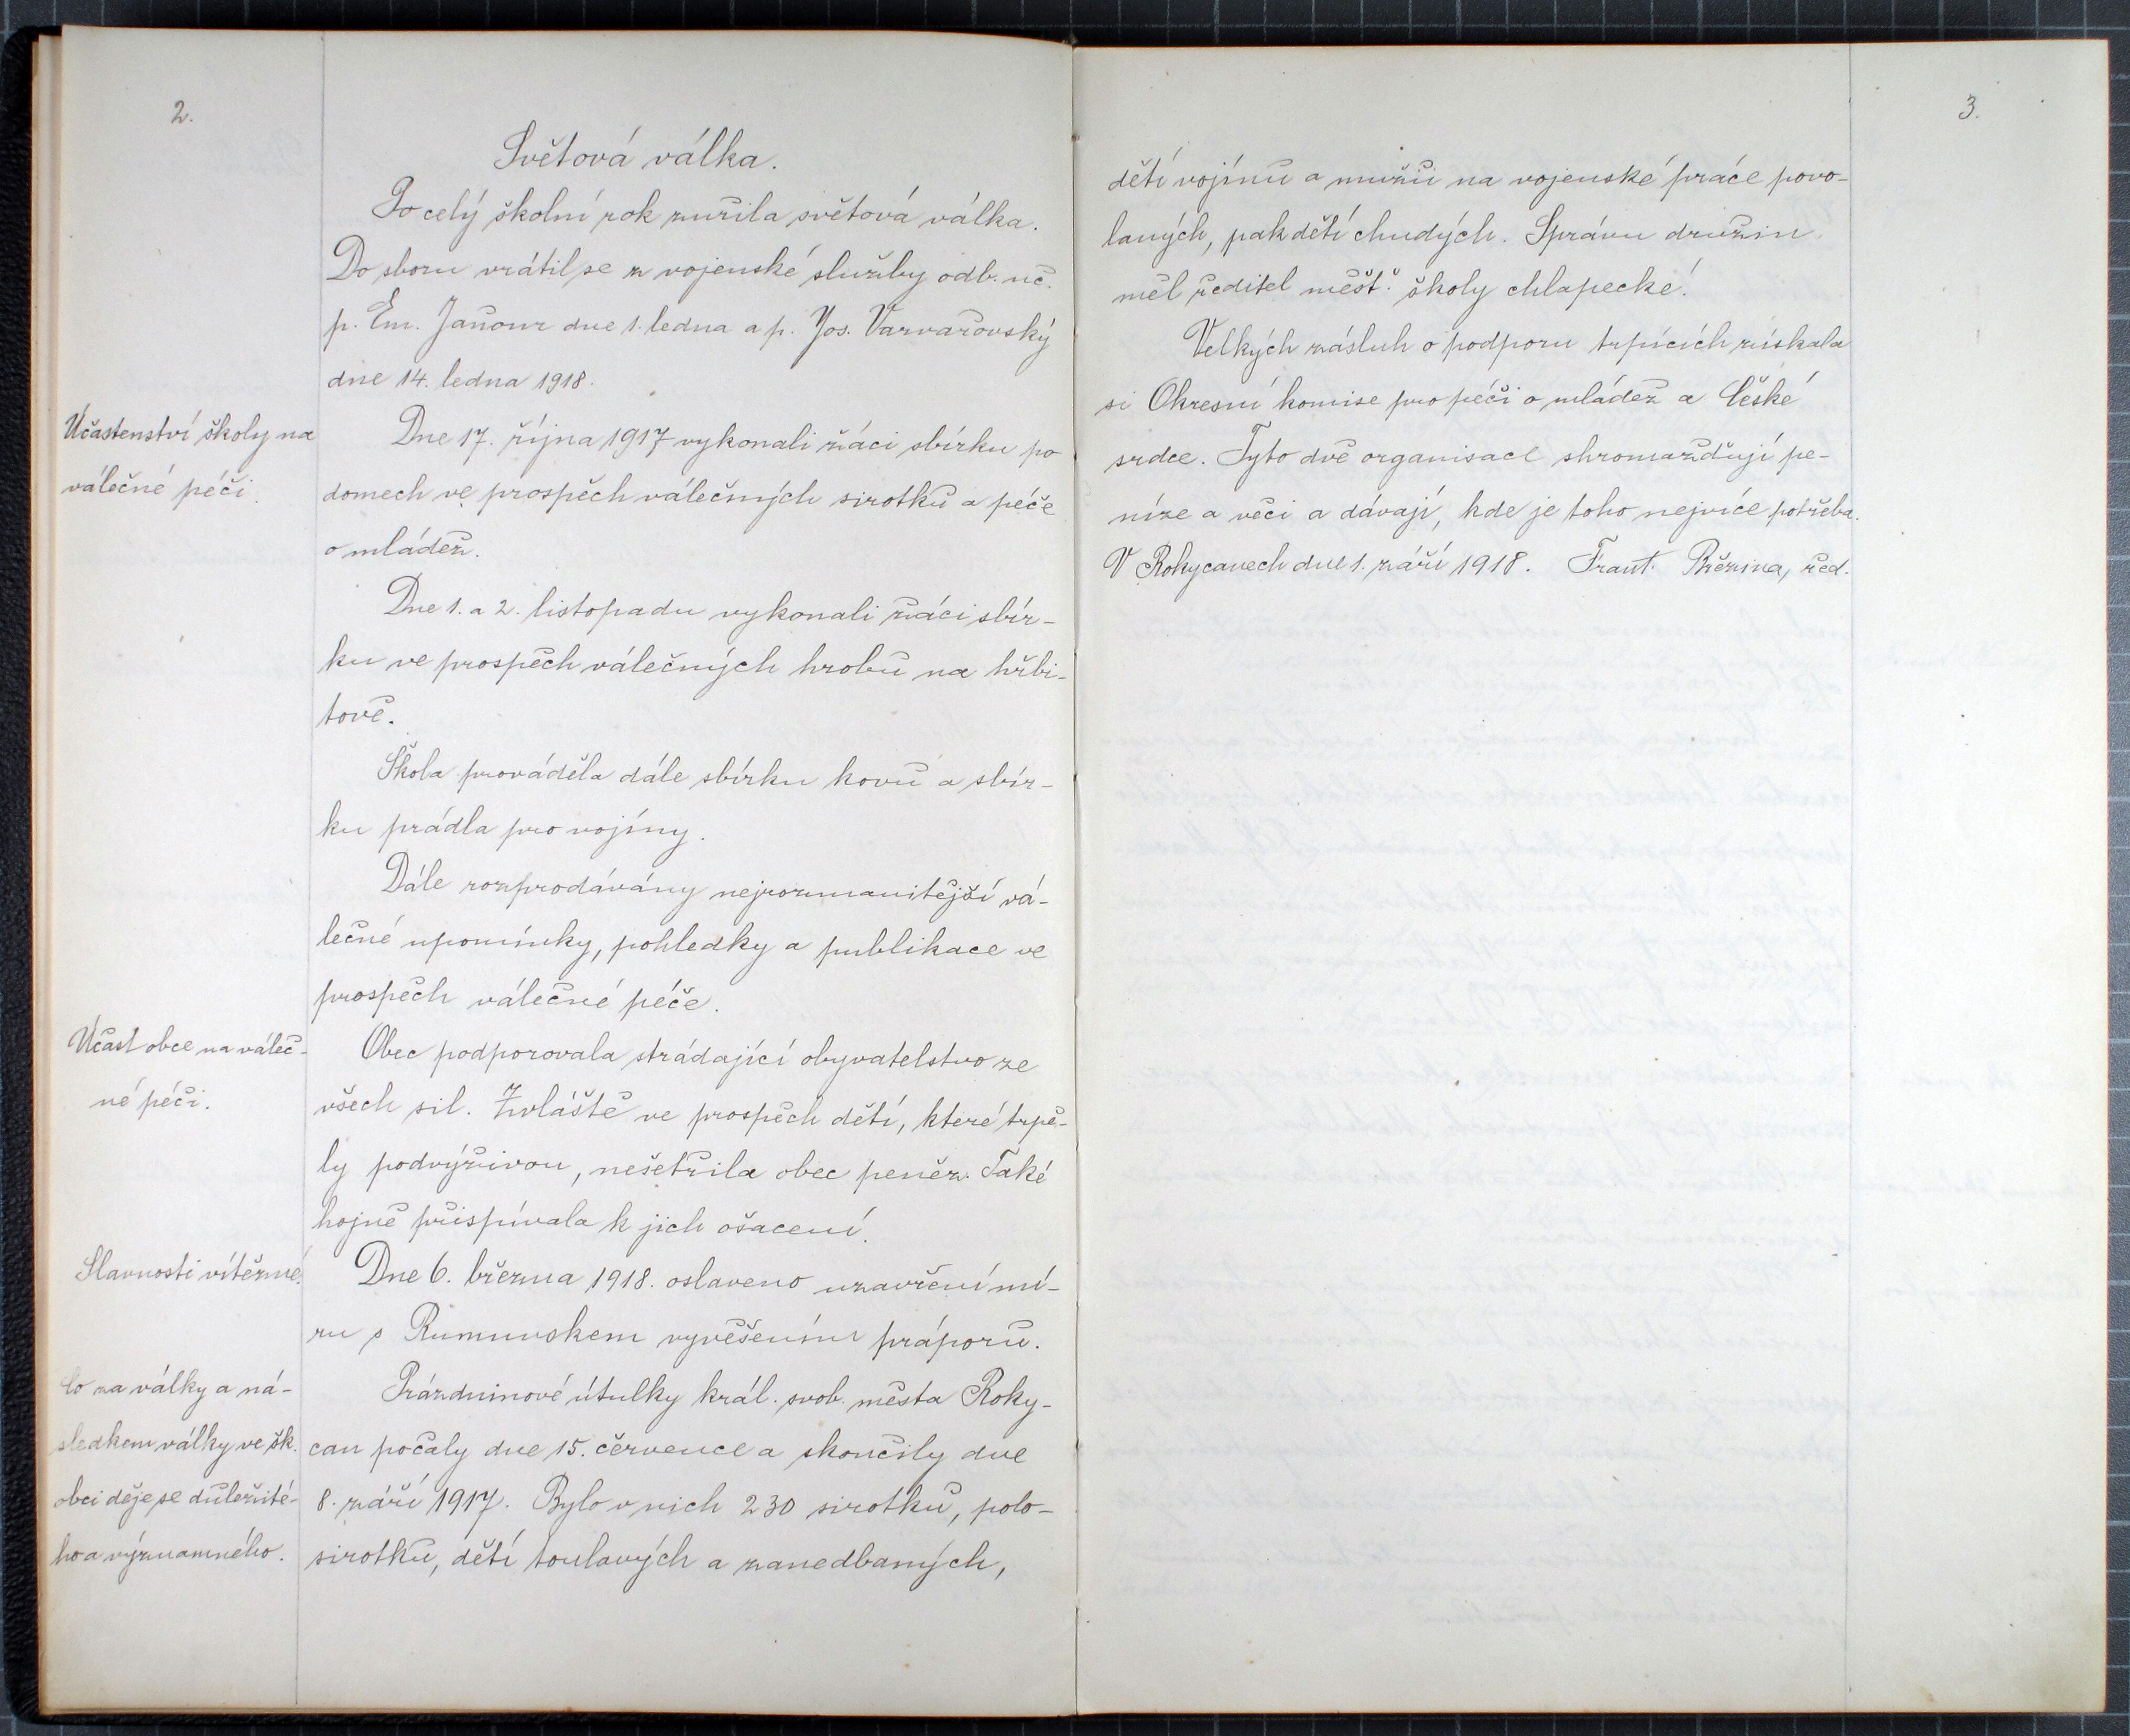 2.
Světová válka.
Po celý školní rok zuřila světová válka.
Do sboru vrátil se z vojenské služby odb. uč.
p. Em. Janour dne 1. ledna a p. Jos. Varvařovský
dne 14. ledna 1918.
Účastenství školy na
válečné péči.
Dne 17. října 1917 vykonali žáci sbírku po
domech ve prospěch válečných sirotků a péče
o mládež.
Dne 1. a 2. listopadu vykonali žáci sbír-
ku ve prospěch válečných hrobů na hřbi-
tově.
Škola prováděla dále sbírku kovů a sbír-
ku prádla pro vojíny.
Dále rozprodávány nejrozmanitější vá-
lečné upomínky, pohledky a publikace ve
prospěch válečné péče.
Účast obce na váleč-
né péči.
Obec podporovala strádající obyvatelstvo ze
všech sil. Zvláště ve prospěch dětí, které trpě-
ly podvýživou, nešetřila obec peněz. Také
hojně přispívala k jich ošacení.
Slavnosti vítězné.
Dne 6. března 1918. oslaveno uzavření mí-
ru s Rumunskem vyvěšením práporů.
Co za války a ná-
sledkem války ve šk.
obci děje se důležité-
ho a významného.
Prázdninové útulky král. svob. města Roky-
can počaly dne 15. července a skončily dne
8. září 1917. Bylo v nich 230 sirotků, polo-
sirotků, dětí toulavých a zanedbaných,
3.
dětí vojínů a mužů na vojenské práce povo-
laných, pak dětí chudých. Správu družin
měl ředitel měšť. školy chlapecké.
Velkých zásluh o podporu trpících získala
si Okresní komise pro péči o mládež a České
srdce. Tyto dvě organisace shromažďují pe-
níze a věci a dávají, kde je toho nejvíce potřeba.
V Rokycanech dne 1. září 1918. Frant. Březina, řed.